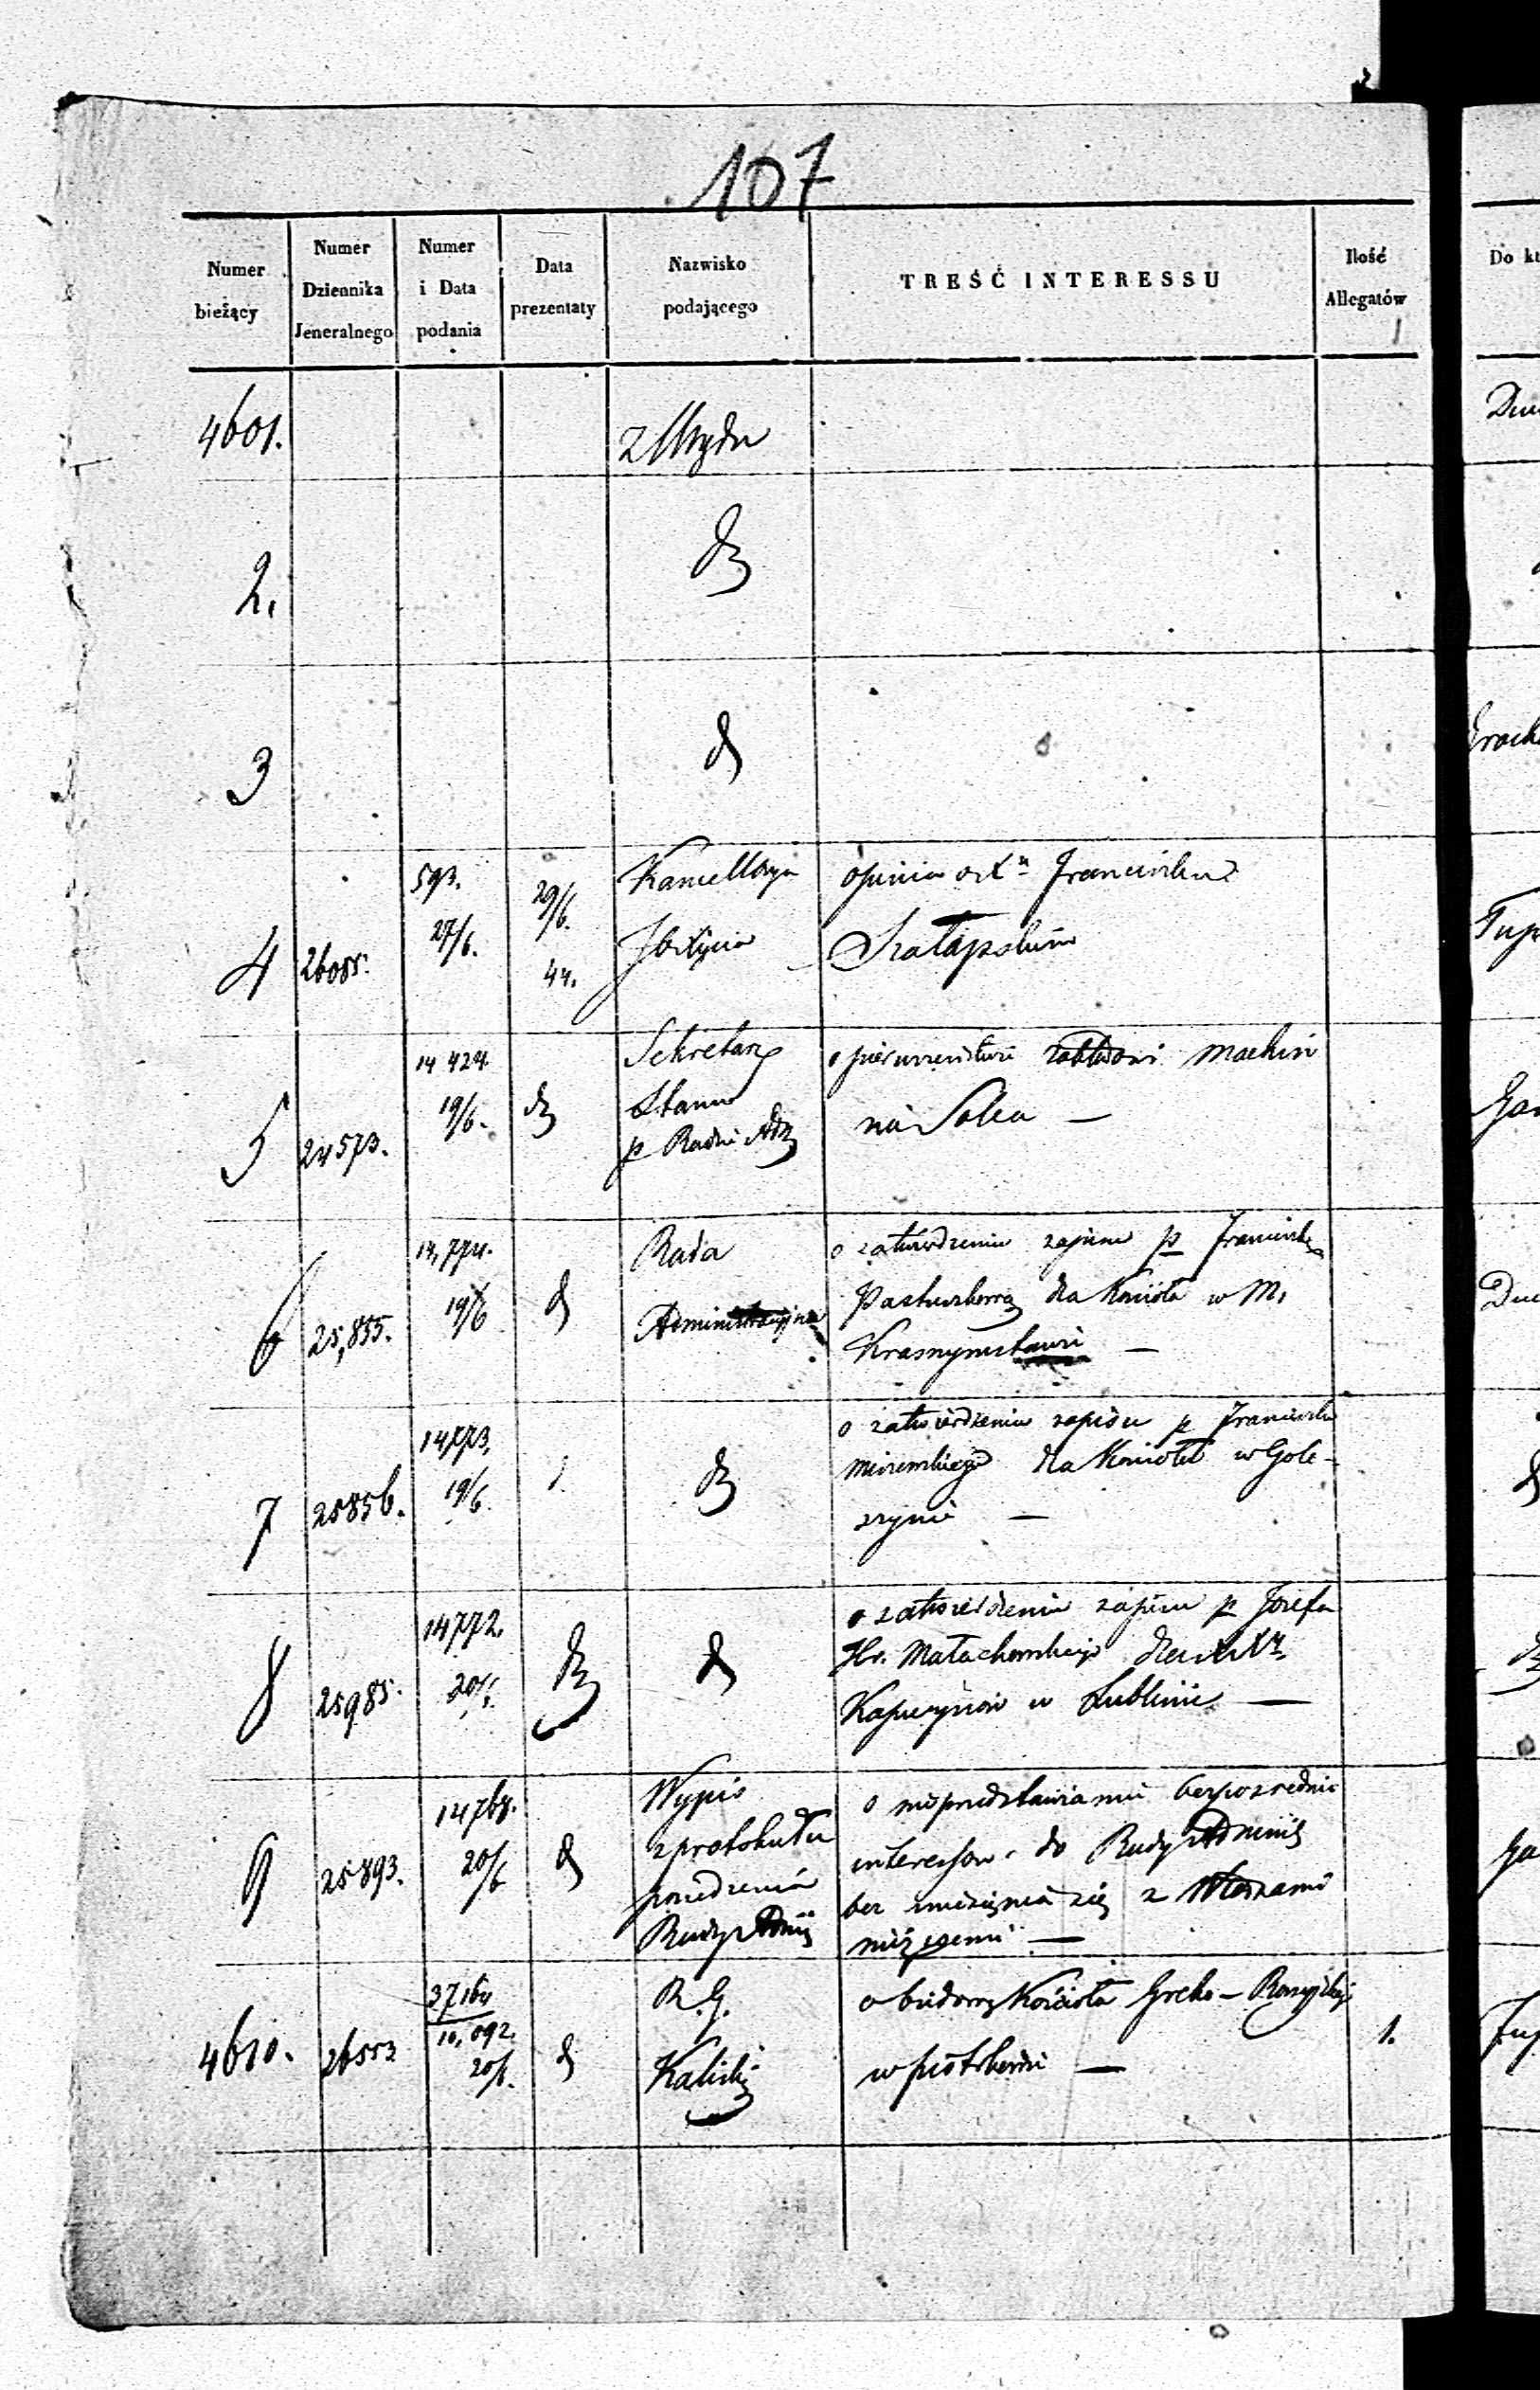 107
Numer bieżący
Numer Dziennika Jeneralnego
Numer i Data podania
Data prezentaty
Nazwisko podającego
TREŚĆ INTERESSU
Ilość Allegatów
Do kt
4601.
z Urzędu
2.
3
4
26085.
593.
27/6.
29/6.
44.
Kancellarya
opinia o Xu Franciszku
5
24573.
14 424.
19/6.
Sekretarz
Stanu
p Radzie Adm
machin
na Solcu —
6
25,855.
14,774.
19/6
Rada
Administracyjna
o zatwierdzeniu zapisu p Franciszk
dla Kościoła w M.
Krasnymstawie —
7
25856.
14773,
19/6.
o zatwierdzeniu zapisu p Franciszka
dla Kościoła w Gole-
szynie —
8
25985.
14772.
20/6.
o zatwierdzeniu zapisu p Józefa
Hr. Małachowskiego dla XX
Kapucynów w Lublinie —
9
25893.
20/6
Wypis
z protokułu
posiedzenia
Rady Admij
o nieprzedstawianiu bezpośrednio
interessów do Rady Adminis
bez zniesienia się z Władzami
niższemi —
4610.
26553
37164
10,092.
20/6.
R. G.
Kaliski
o budowę Kościoła Greko-Rossyjskiego
w Piotrkowie —
1.